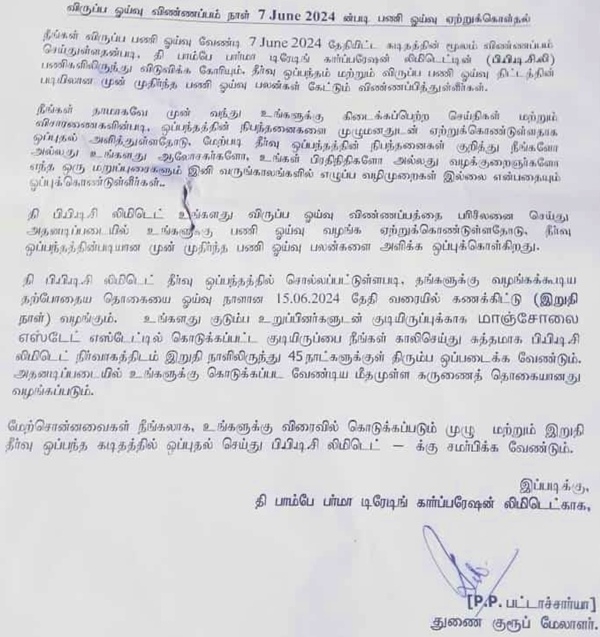 விருப்ப ஓய்வு விண்ணப்பம் நாள் 7 June 2024 ன்படி பணி ஓய்வு ஏற்றுக்கொள்தல்
நீங்கள் விருப்ப பணி ஓய்வு வேண்டி 7 June 2024 தேதியிட்ட கடிதத்தின் மூலம் விண்ணப்பம்
செய்துள்ளதன்படி, தி பாம்பே பர்மா டிரேடிங் கார்ப்பரேஷன் லிமிடெட்டின் (பி.பி.டி.சி.லி)
பணிகளிலிருந்து விடுவிக்க கோரியும், தீர்வு ஒப்பந்தம் மற்றும் விருப்ப பணி ஓய்வு திட்டத்தின்
படியிலான முன் முதிர்ந்த பணி ஓய்வு பலன்கள் கேட்டும் விண்ணப்பித்துள்ளீர்கள்.
நீங்கள் தாமாகவே முன் வந்து உங்களுக்கு கிடைக்கப்பெற்ற செய்திகள் மற்றும்
விசாரணைகளின்படி, ஒப்பந்தத்தின் நிபந்தனைகளை முழுமனதுடன் ஏற்றுக்கொண்டுள்ளதாக
ஒப்புதல் அளித்துள்ளதோடு, மேற்படி தீர்வு ஒப்பந்தத்தின் நிபந்தனைகள் குறித்து நீங்களோ
அல்லது உங்களது ஆலோசகர்களோ, உங்கள் பிரதிநிதிகளோ அல்லது வழக்குரைஞர்களோ
எந்த ஒரு மறுப்புரைகளும் இனி வருங்காலங்களில் எழுப்ப வழிமுறைகள் இல்லை என்பதையும்
ஒப்புக்கொண்டுள்ளீர்கள்..
தி பி.பி.டி.சி லிமிடெட் உங்களது விருப்ப ஓய்வு விண்ணப்பத்தை பரிலேனை செய்து
அதனடிப்படையில் உங்களுக்கு பணி ஓய்வு வழங்க ஏற்றுக்கொண்டுள்ளதோடு, தீர்வு
ஒப்பந்தத்தின்படியான முன் முதிர்ந்த பணி ஓய்வு பலன்களை அளிக்க ஒப்புக்கொள்கிறது.
தி பி.பி.டி.சி லிமிடெட் தீர்வு ஒப்பந்தத்தில் சொல்லப்பட்டுள்ளபடி, தங்களுக்கு வழங்கக்கூடிய
தற்போதைய தொகையை ஓய்வு நாளான 15.06.2024 தேதி வரையில் கணக்கிட்டு (இறுதி
நாள்) வழங்கும். உங்களது குடும்ப உறுப்பினர்களுடன் குடியிருப்புக்காக மாஞ்சோலை
எஸ்டேட் எஸ்டேட்டில் கொடுக்கப்பட்ட குடியிருப்பை நீங்கள் காலிசெய்து சுத்தமாக பி.பி.டி.சி
லிமிடெட் நிர்வாகத்திடம் இறுதி நாளிலிருந்து 45நாட்களுக்குள் திரும்ப ஒப்படைக்க வேண்டும்.
அதனடிப்படையில் உங்களுக்கு கொடுக்கப்பட வேண்டிய மீதமுள்ள கருணைத் தொகையானது
வழங்கப்படும்.
மேற்சொன்னவைகள் நீங்கலாக, உங்களுக்கு விரைவில் கொடுக்கப்படும் முழு மற்றும் இறுதி
தீர்வு ஒப்பந்த கடிதத்தில் ஒப்புதல் செய்து பி.பி.டி.சி லிமிடெட் – க்கு சமர்பிக்க வேண்டும்.
இப்படிக்கு,
தி பாம்பே பர்மா டிரேடிங் கார்ப்பரேஷன் லிமிடெட்காக,
[P.P. பட்டாச்சார்யா]
துணை குரூப் மேலாளர்.